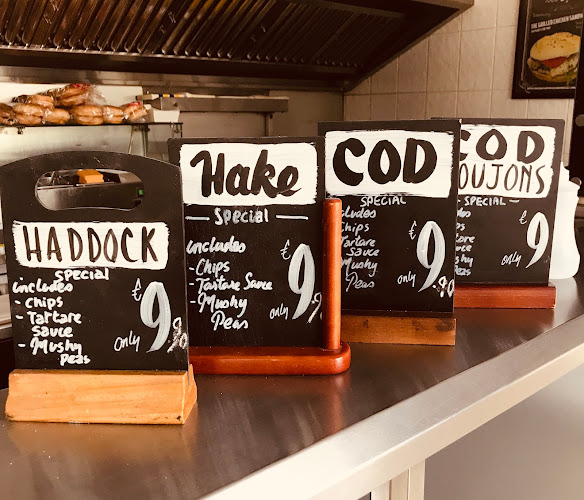 HADDOCK
SPECIAL
includes
- chips
- Tartare
Sauce
- Mushy
Peas
€
only 9
Hake
Special
includes
- Chips
- Tartare Sauce
- Mushy
Peas
€
only 9
COD
SPECIAL
includes
Chips
Tartare
Sauce
Mushy
Peas
€
only 9
COD
OUJONS
SPECIAL
€
only 9